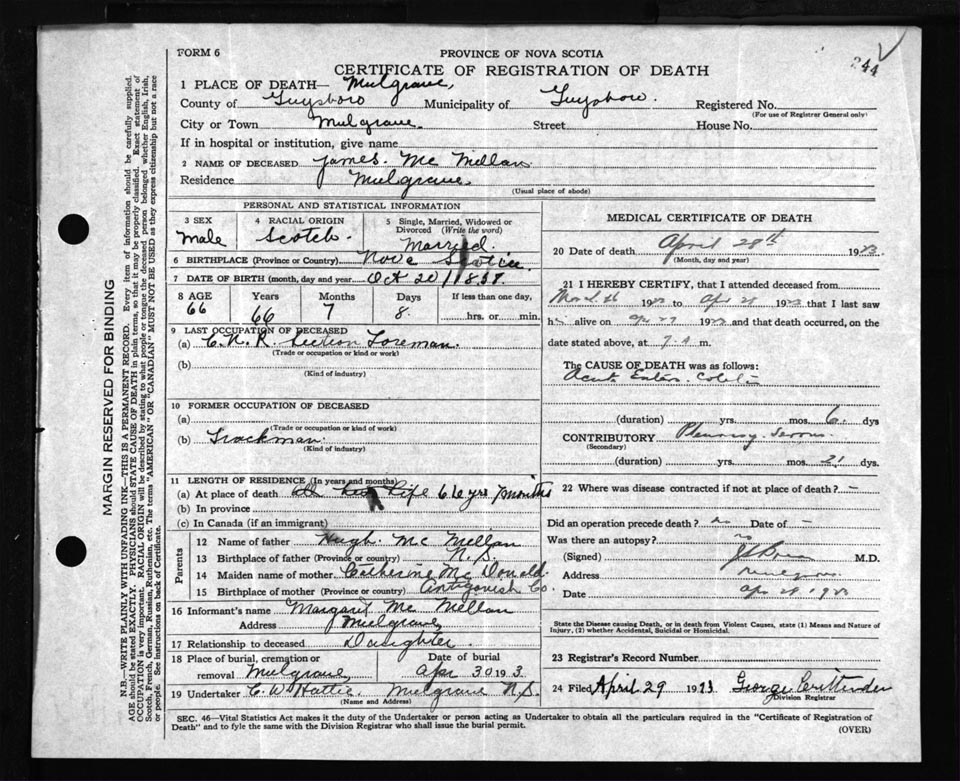 FORM 6
PROVINCE OF NOVA SCOTIA
CERTIFICATE OF REGISTRATION OF DEATH
244
1 PLACE OF DEATH— Mulgrave,
County of Guysboro Municipality of Guysboro. Registered No.
(For use of Registrar General only)
City or Town Mulgrave. Street House No.
If in hospital or institution, give name
2 NAME OF DECEASED James. Mc Millan
Residence Mulgrave.
(Usual place of abode)
PERSONAL AND STATISTICAL INFORMATION
3 SEX Male
4 RACIAL ORIGIN Scotch.
5 Single, Married, Widowed or Divorced (Write the word) Married.
6 BIRTHPLACE (Province or Country) Nova Scotia
7 DATE OF BIRTH (month, day and year) Oct 20/
8 AGE 66 Years 66 Months 7 Days 8. If less than one day, hrs. or min.
9 LAST OCCUPATION OF DECEASED
(a) C. N. R. Section Foreman.
(Trade or occupation or work)
(b)
(Kind of industry)
10 FORMER OCCUPATION OF DECEASED
(a)
(Trade or occupation or kind of work)
(b) Trackman.
(Kind of industry)
11 LENGTH OF RESIDENCE (In years and months)
(a) At place of death Life 66 yrs 7 months
(b) In province
(c) In Canada (if an immigrant)
Parents
12 Name of father Hugh. Mc Millan
13 Birthplace of father (Province or country) N. S.
14 Maiden name of mother Catherine Mc Donald
15 Birthplace of mother (Province or country) Antigonish Co.
16 Informant's name Margaret Mc Millan
Address Mulgrave
17 Relationship to deceased Daughter
18 Place of burial, cremation or removal Mulgrave Date of burial Apr 30 193
19 Undertaker C. W. Hattie Mulgrave N.S.
(Name and Address)
MEDICAL CERTIFICATE OF DEATH
20 Date of death April 28th 19
(Month, day and year)
21 I HEREBY CERTIFY, that I attended deceased from
19 to Apr 19 that I last saw
h alive on Apr 27 19 and that death occurred, on the
date stated above, at 7. m.
The CAUSE OF DEATH was as follows:
Acute Entero. Colitis
(duration) yrs. mos. 6. dys
CONTRIBUTORY Pleurisy. Serous
(Secondary)
(duration) yrs. mos. 21 dys.
22 Where was disease contracted if not at place of death? —
Did an operation precede death? no Date of —
Was there an autopsy? no
(Signed) M.D.
Address Mulgrave
Date Apr 28, 19
State the Disease causing Death, or in death from Violent Causes, state (1) Means and Nature of
Injury, (2) whether Accidental, Suicidal or Homicidal.
23 Registrar's Record Number
24 Filed April 29 19 George Crittenden
Division Registrar
SEC. 46—Vital Statistics Act makes it the duty of the Undertaker or person acting as Undertaker to obtain all the particulars required in the "Certificate of Registration of
Death" and to fyle the same with the Division Registrar who shall issue the burial permit.
(OVER)
MARGIN RESERVED FOR BINDING
N.B.—WRITE PLAINLY WITH UNFADING INK—THIS IS A PERMANENT RECORD. Every item of information should be carefully supplied.
AGE should be stated EXACTLY. PHYSICIANS should STATE CAUSE OF DEATH in plain terms, so that it may be properly classified. Exact statement of
OCCUPATION is very important. RACIAL ORIGIN will be described by stating to what people or tongue the deceased person belonged whether English, Irish,
Scotch, French, German, Russian, Ruthenian, etc. The terms "AMERICAN" OR "CANADIAN" MUST NOT BE USED as they express citizenship but not a race
or people. See instructions on back of Certificate.